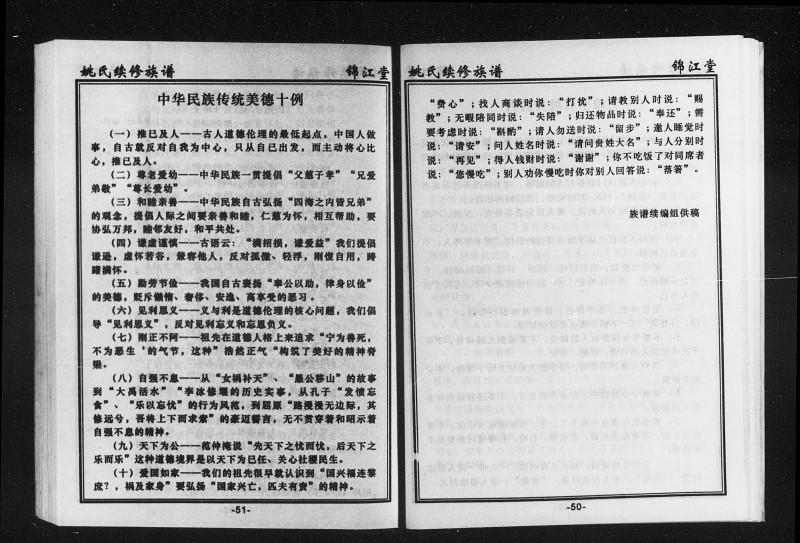 姚氏续修族谱 锦江堂
中华民族传统美德十例
（一）推己及人——古人道德伦理的最低起点，中国人做
事，自古就反对自我为中心，只从自己出发，而主动将心比
心，推己及人。
（二）尊老爱幼——中华民族一贯提倡“父慈子孝”“兄爱
弟敬”“尊长爱幼”。
（三）和睦亲善——中华民族自古弘扬“四海之内皆兄弟”
的观念，提倡人际之间要亲善和睦，仁慈为怀，相互帮助，要
协弘万邦，睦邻友好，和平共处。
（四）谦虚谨慎——古语云：“满招损，谦受益”我们提倡
谦逊，虚怀若谷，兼容他人，反对孤傲、轻浮，刚愎自用，踌
躇满怀。
（五）勤劳节俭——我国自古褒扬“奉公以勤，律身以俭”
的美德，贬斥懒惰、奢侈、安逸、高享受的恶习。
（六）见利思义——义与利是道德伦理的核心问题，我们倡
导“见利思义”，反对见利忘义和忘恩负义。
（七）刚正不阿——祖先在道德人格上来追求“宁为善死，
不为恶生‘的气节，这种”浩然正气“构筑了美好的精神脊
梁。
（八）自强不息——从“女祸补天”、“愚公移山”的故事
到“大禹活水”“李冰修堰的历史实事，从孔子“发愤忘
食”、“乐以忘忧”的行为风范，到屈原“路漫漫无边际，其
修远兮，吾将上下而求索”的豪迈誓言，无不贯穿着和昭示着
自强不息的精神。
（九）天下为公——范仲淹说“先天下之忧而忧，后天下之
乐而乐”这种道德境界是以天下为己任、关心社稷民生。
（十）爱国如家——我们的祖先很早就认识到“国兴福连黎
庶？，祸及家身”要弘扬“国家兴亡，匹夫有责”的精神。
-51-
姚氏续修族谱 锦江堂
“费心”；找人商谈时说：“打扰”；请教别人时说：“赐
教”；无暇陪同时说：“失陪”；归还物品时说：“奉还”；需
要考虑时说：“斟酌”；请人勿送时说：“留步”；邀人睡觉时
说：“请安”；问人姓名时说：“请问贵姓大名”；与人分别时
说：“再见”；得人钱财时说：“谢谢”；你不吃饭了对同席者
说：“您慢吃”；别人劝你慢吃时你对别人回答说：“落箸”。
族谱续编组供稿
-50-